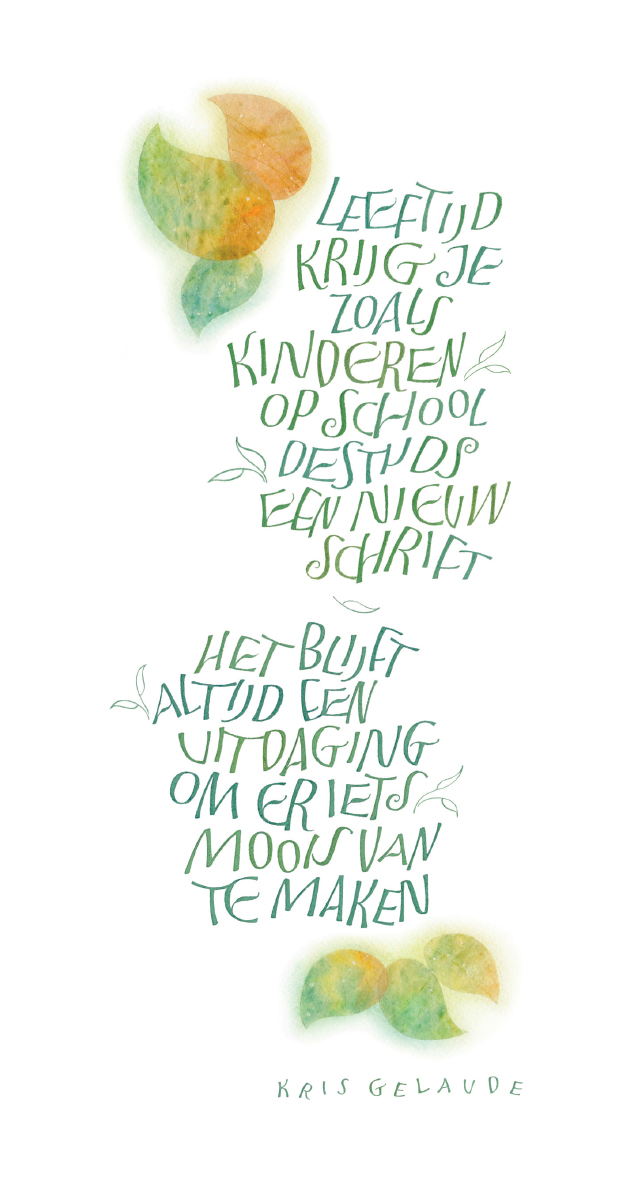 LEEFTIJD
KRIJG JE
ZOALS
KINDEREN
OP SCHOOL
DESTIJDS
EEN NIEUW
SCHRIFT
HET BLIJFT
ALTIJD EEN
UITDAGING
OM ER IETS
MOOIS VAN
TE MAKEN
KRIS GELAUDE